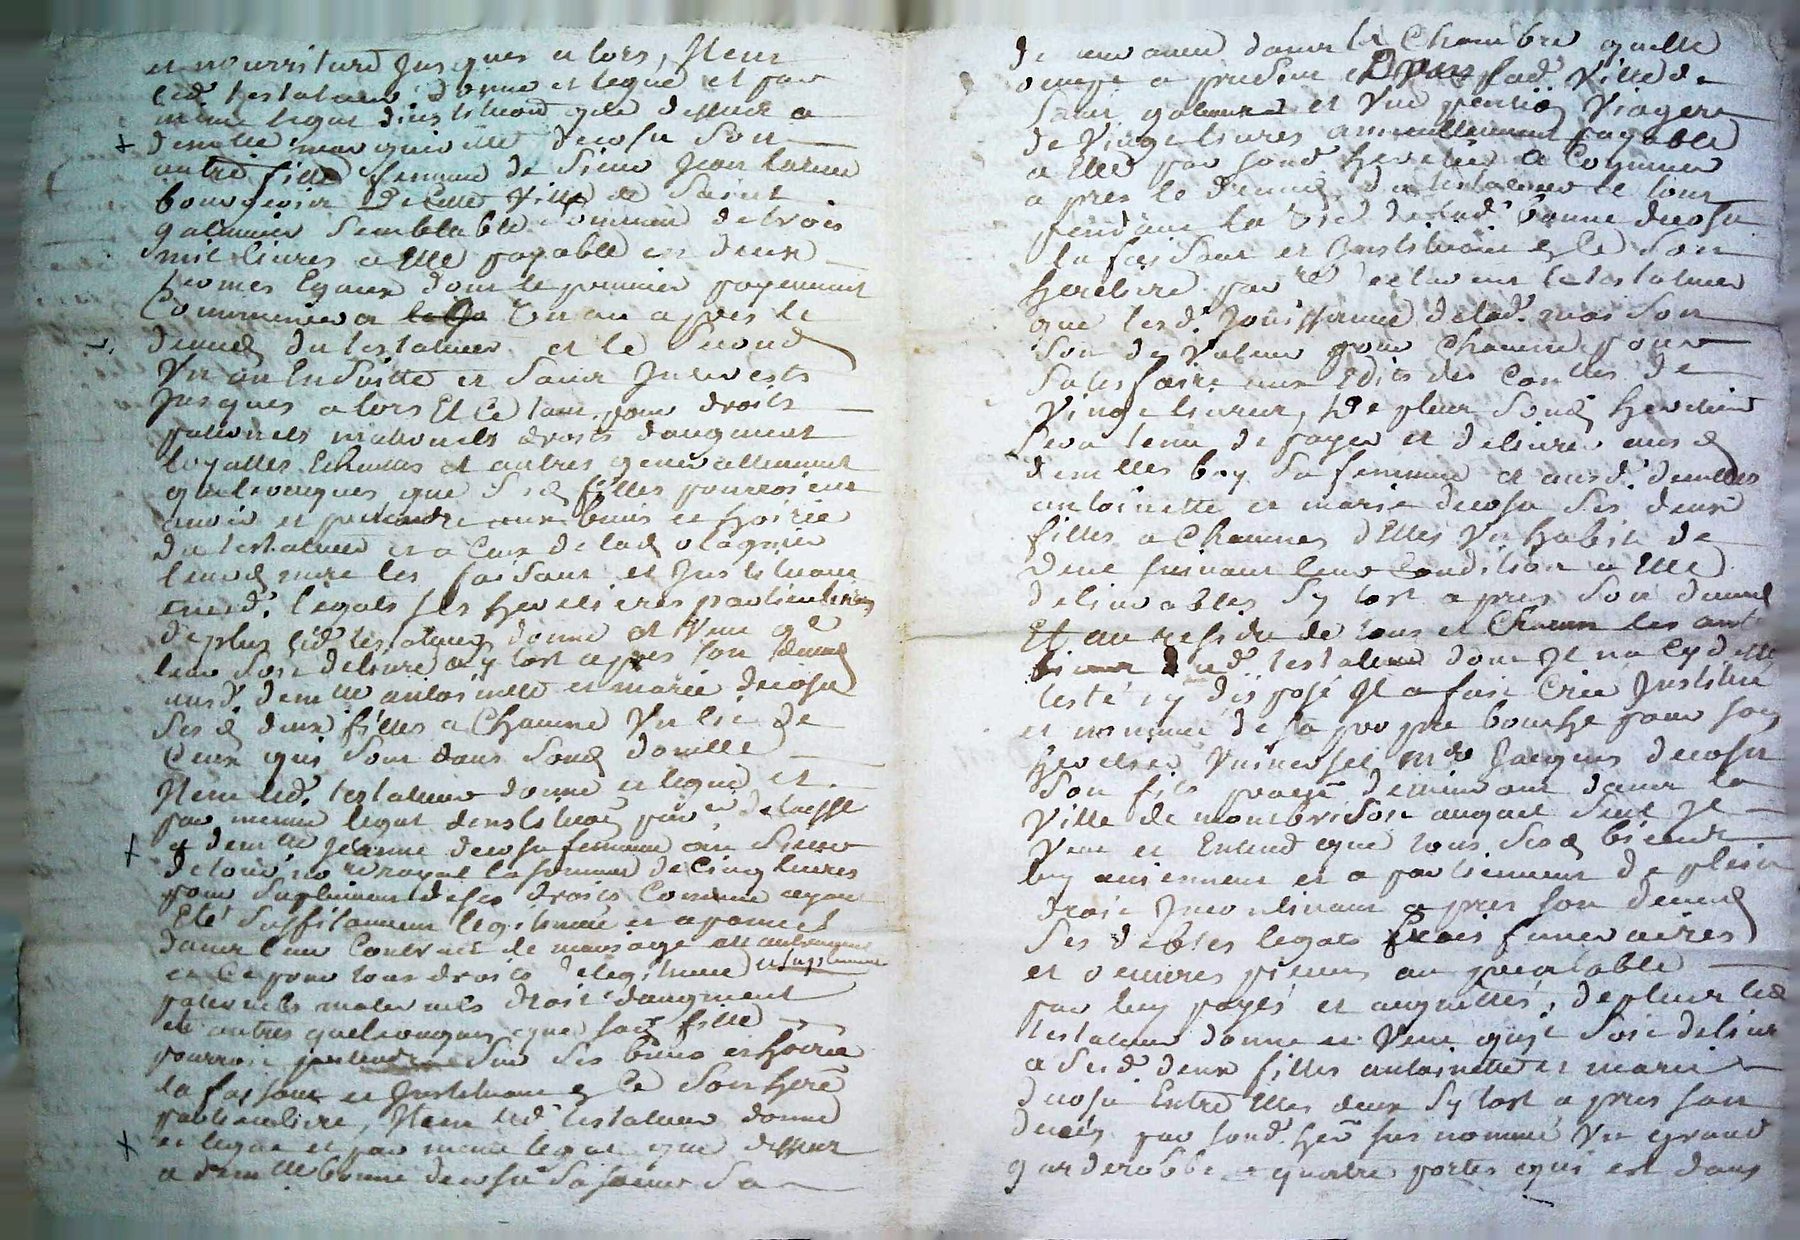 et nourriture jusques alors, Item
led. testateur donne et legue et par
même legat d'institution que dessus a
demlle margueritte decosu son
autre fille femme de sieur Jean
bourgeois de cette ville de Saint
galmier semblable somme de trois
mil livres a elle payable en deux
termes Egaux dont le premier payement
Commencera un an apres le
deced du testateur et le second
Un an Ensuitte et sans Interests
Jusques alors Et ce tant pour droits
paternels maternels droits daugment
loyattes Echuttes et autres generallement
quelconques que sesd filles pourroient
avoir et pretendre aux biens et hoirie
du testateur et a Ceux de lad
leur mere les faisant et Instituant
auxd. legats ses heretieres particulieres
de plus led. testateur donne et veut que
leur soit delivré sy tost apres son deced
ausd. demlle antoinette et marie decosu
sesd deux filles a Chacune Un lit de
Ceux qui sont dans sond domille
Item led. testateur donne et legue et
par meme legat dinstitution delaisse
a demlle jeanne decosu femme au sieur
royal la somme de Cinq livres
pour suplement de ses droits Comme ayant
Eté suffisament legitimée et
dans son Contrait de mariage
et Ce pour tous droits de legitime et suplement
paternels maternels droit daugment
et autres quelconques que sad fille
pourroit pretendre sur ses biens et hoirie
la faisant et Instituant en Ce son here
particuliere, Item led. testateur donne
et legue et par meme legat que dessus
a demlle bonne decosu sa soeur sa
de dans la Chambre quelle
occupe a present lad. Ville de
Saint galmier et Une pention Viagere
de Vingt livres annuellement payable
a Elle par sond. heretier a Commencer
apres le deced du testateur le tout
pendant la vie de lad. bonne decosu
la faisant et Instituant en Ce son
heretiere et declarent le testateur
que lesd. Jouissance de lad. maison
son de valeur pour Chacune pour
satisfaire aux Edits des Contles de
Vingt livres, De plus sond heretier
sera tenu de payer et delivrer ausd
demlles boy sa femme et ausd. demlles
antoinette et marie decosu ses deux
filles a Chacunes d'Elles Un habit de
deuil suivant leur Condition a Elle
delivrables sy tost apres son deced
Et au residu de tous et Chacun les aut
biens dud. testateur dont Il na Cy dessus
testé ny disposé Il a fait Crée Institué
et nommé de sa propre bouche pour son
heretier Universel Mre Jacques decosu
son fils demeurant dans la
Ville de montbrison auquel seul Il
Veut et Entend que tous sesd biens
luy aviennent et apartiennent de plein
droit Incontinant apres son deced
ses debtes legats frais funeraires
et oeuvres pieuses au prealable
par luy payés et acquittés, de plus led
testateur donne et Veut quil soit delivré
a sesd. deux filles antoinette et marie
decosu Entre Elles deux sy tost apres son
deces par sond. here sus nommé Un grand
garderobbe a quatre portes qui est dans